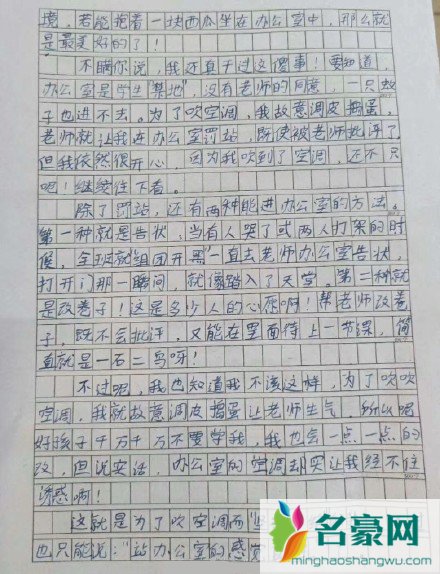 境，若能抱着一块西瓜坐在办公室中，那么就
是最美好的了！
不瞒你说，我还真干过这傻事！要知道，
办公室是学生"禁地"，没有老师的同意，一只蚊
子也进不去。为了吹空调，我故意调皮捣蛋，
老师就让我进办公室罚站，既使被老师批评了
但我依然很开心，因为我吹到了空调，还不只
呢！继续往下看。
除了罚站，还有两种能进办公室的方法。
第一种就是告状，当有人哭了或两人打架的时
候，全班就组团开黑"一直去老师办公室告状，
打开门那一瞬间，就像踏入了天堂。第二种就
是改卷子！这是多少人的心愿啊！帮老师改卷
子，既不会批评，又能在里面待上一节课，简
直就是一石二鸟呀！
不过呢，我也知道我不该这样，为了吹吹
空调，我就故意调皮捣蛋让老师生气，所以呢
好孩子千万千万不要学我，我也会一点一点的
改，但说实话，办公室的空调却实让我经不住
诱惑啊！
这就是为了吹空调而
也只能说："站办公室的感
名豪网
minghaoshangwu.com